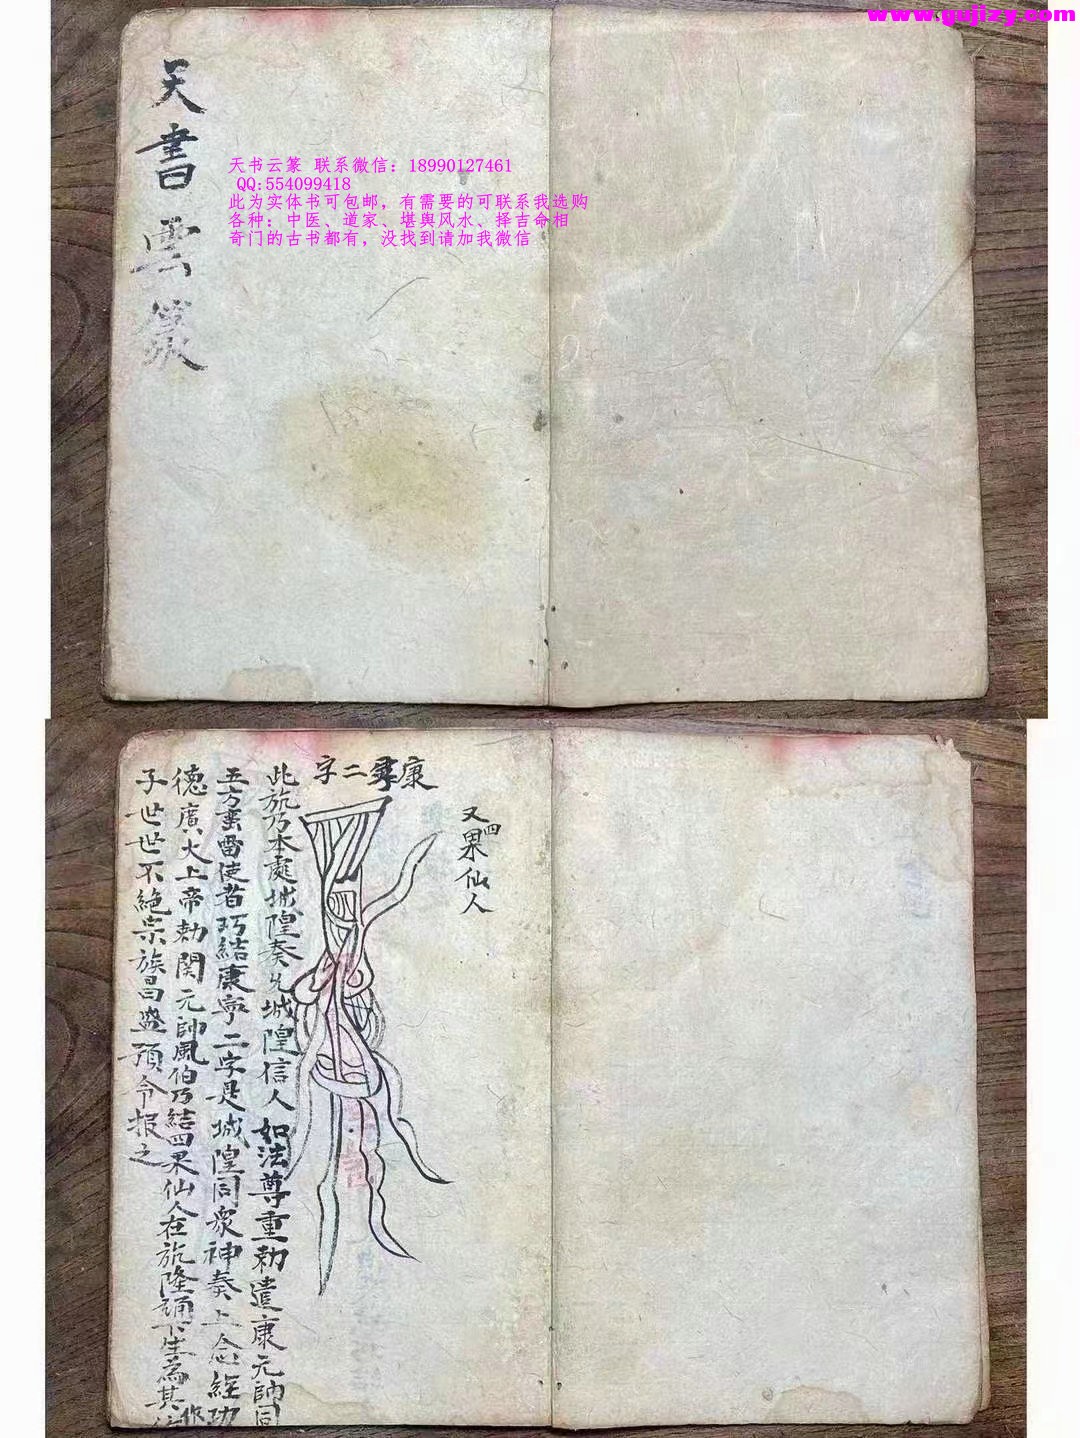 www.gujizy.com
天書雲篆
天书云篆 联系微信：18990127461
QQ:554099418
此为实体书可包邮，有需要的可联系我选购
各种：中医、道家、堪舆风水、择吉命相
奇门的古书都有，没找到请加我微信
康寧二字
又四果仙人
此旂乃本處城隍奏兊城隍信人如法尊重勅遣康元帥同
五方蛮雷使者巧結康寧二字是城隍同衆神奏上念經功
德廣大上帝勅関元帥風伯乃結四果仙人在旂隆誦下生為其
子世世不絕宗族昌盛預令報之